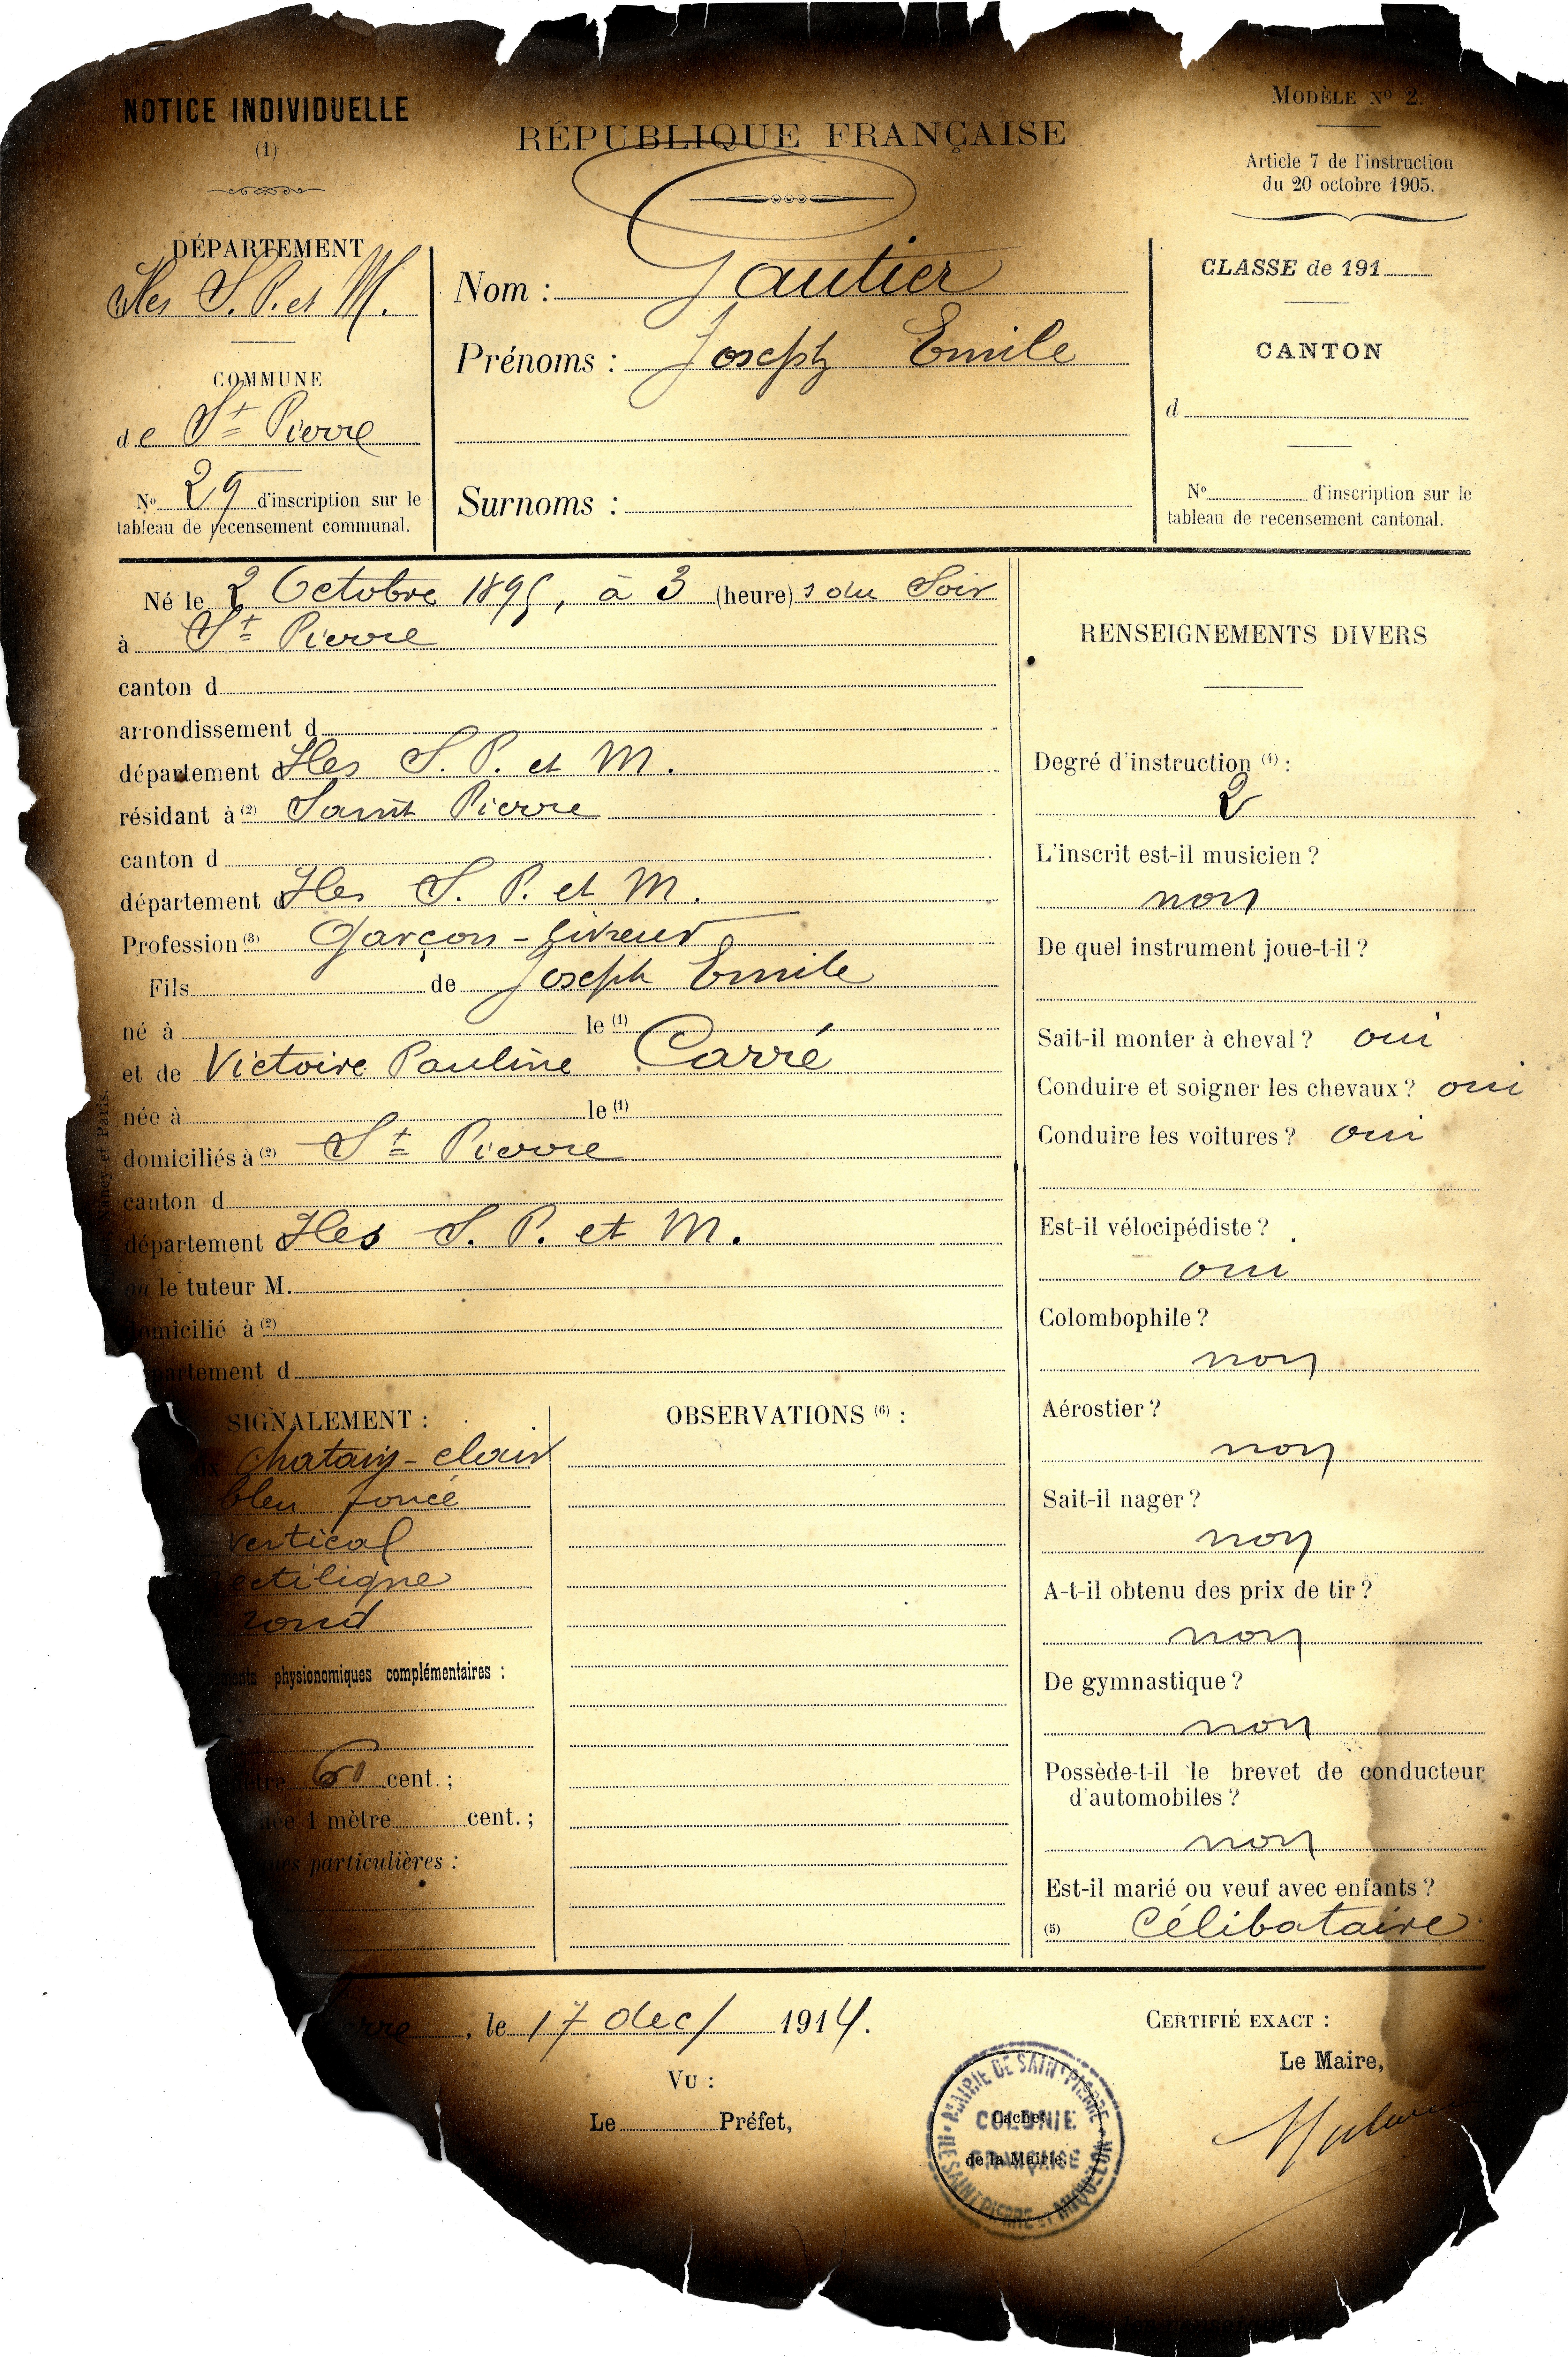 NOTICE INDIVIDUELLE
(1)
DÉPARTEMENT
Iles S. P. et M.
COMMUNE
de St Pierre
No 29 d'inscription sur le
tableau de recensement communal.
RÉPUBLIQUE FRANÇAISE
Nom : Gautier
Prénoms : Joseph Emile
Surnoms :
MODÈLE No 2.
Article 7 de l'instruction
du 20 octobre 1905.
CLASSE de 191
CANTON
d
No d'inscription sur le
tableau de recensement cantonal.
Né le 2 Octobre 1895, à 3 (heure) s du Soir
à St Pierre
canton d
arrondissement d
département d Iles S. P. et M.
résidant à (2) Saint Pierre
canton d
département d Iles S. P. et M.
Profession (3) Garçon-livreur
Fils de Joseph Emile
né à le (1)
et de Victoire Pauline Carré
née à le (1)
domiciliés à (2) St Pierre
canton d
département d Iles S. P. et M.
ou le tuteur M.
domicilié à (2)
partement d
SIGNALEMENT :
chatain-clair
bleu foncé
vertical
ectiligne
rond
ments physionomiques complémentaires :
mètre 61 cent. ;
1 mètre cent. ;
particulières :
OBSERVATIONS (6) :
RENSEIGNEMENTS DIVERS
Degré d'instruction (4) :
2
L'inscrit est-il musicien ?
non
De quel instrument joue-t-il ?
Sait-il monter à cheval ? oui
Conduire et soigner les chevaux ? oui
Conduire les voitures ? oui
Est-il vélocipédiste ?
oui
Colombophile ?
non
Aérostier ?
non
Sait-il nager ?
non
A-t-il obtenu des prix de tir ?
non
De gymnastique ?
non
Possède-t-il le brevet de conducteur
d'automobiles ?
non
Est-il marié ou veuf avec enfants ?
(5) Célibataire
erre, le 17 dec/ 1914.
VU :
Le Préfet,
CERTIFIÉ EXACT :
Le Maire,
MAIRIE DE SAINT PIERRE
COLONIE
FRANÇAISE
ILES SAINT PIERRE ET MIQUELON
Cachet
de la Mairie.
Nancy et Paris.